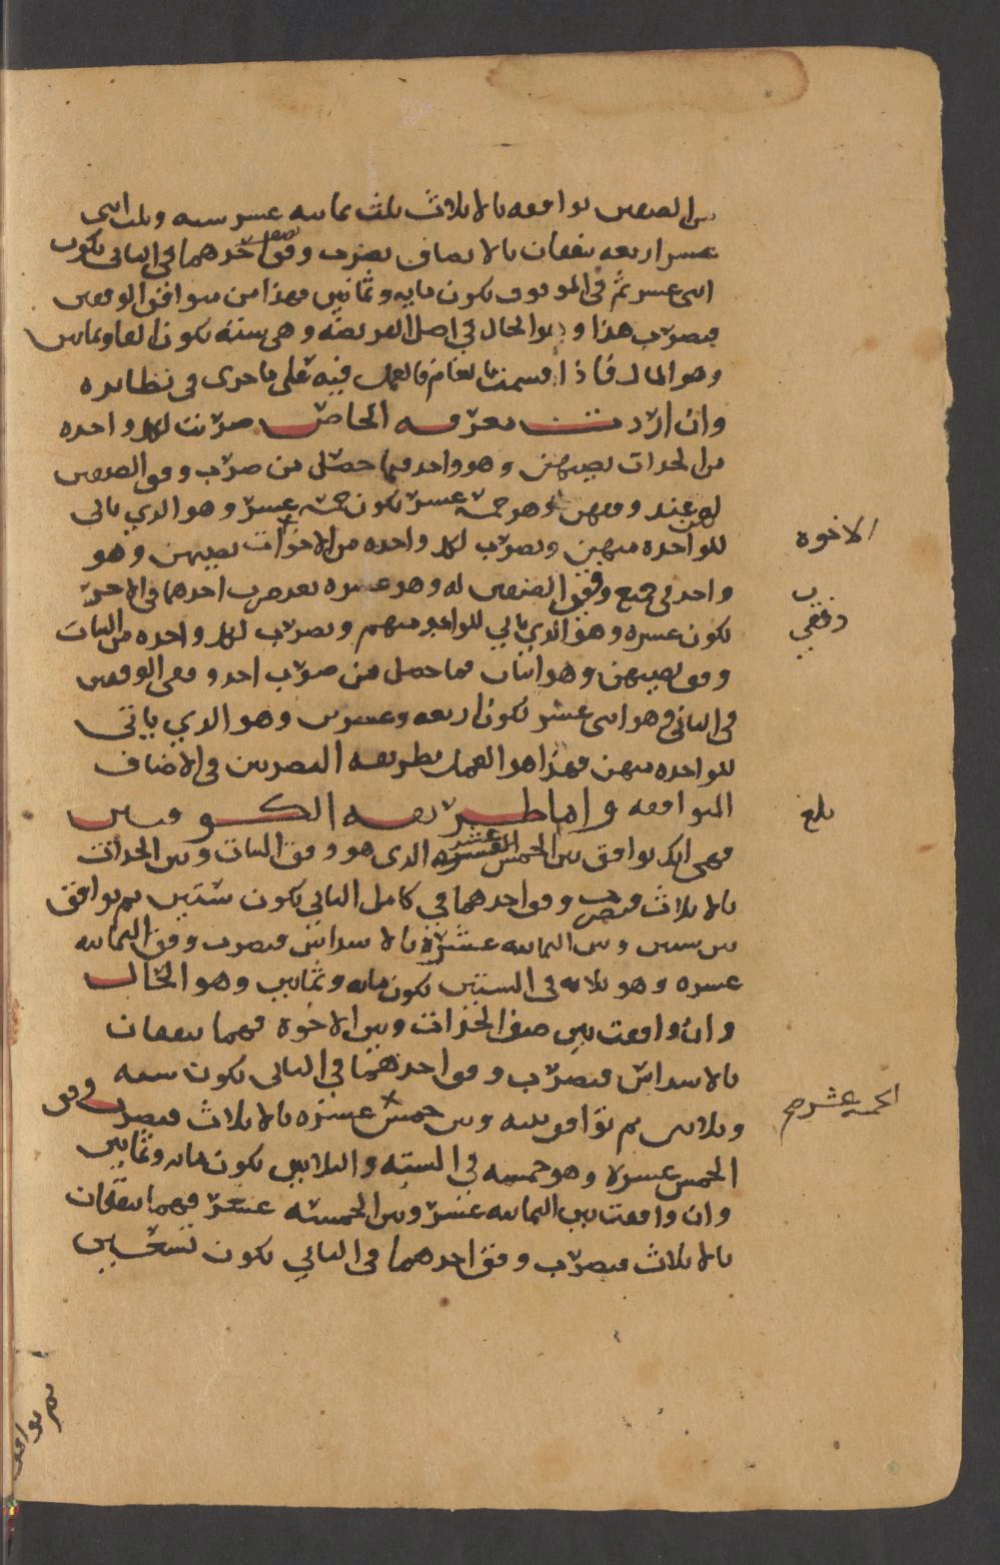 من الصنفين توافقه بالاثلاث ثلث ثمانيه عشر سته وثلث اثنى
عشر اربعه يتفقان بالانصاف يضرب وفق احدهما في الثاني يكون
اثنى عشر ثم في الموقوف يكون مايه وثمانين فهذا من توافق الوفقين
فيضرب هذا وهو الحال في اصل الفريضه وهي سته يكون الفا وثمانين
وهو المال فاذا قسمت فالعمل فيه على ما جرى في نظائره
وان اردت معرفه الحاضر ضربت لكل واحده
من الجدات نصيبهن وهو واحد فيما حصل من ضرب وفق الصنفين
وهو خمسة عشر يكون خمسة عشر وهو الذي ياتي
للواحده منهن وتضرب لكل واحده من الاخوات نصيبهن وهو
واحد في جميع وفقي الصنفين له وهو عشره بعد ضرب احدهما في الاخر
يكون عشره وهو الذي ياتي للواحد منهم وتضرب لكل واحده من البنات
وفق نصيبهن وهو اثنان فيما حصل من ضرب احد وفقي الوفقين
في الثاني وهو اثنى عشر يكون اربعه وعشرين وهو الذي ياتي
للواحده منهن فهذا هو العمل بطريقه البصريين في الاصناف
المتوافقه واما طريقه الكوفيين
فهي انك توافق بين الخمس العشره الذي هو وفق البنات وبين الجدات
بالاثلاث فتضرب وفق احدهما في كامل الثاني يكون ستين ثم توافق
بين ستين وبين الثمانيه عشره بالاسداس فيضرب وفق الثمانيه
عشره وهو ثلاثه في الستين يكون مايه وثمانين وهو الحال
وان وافقت بين صنف الجدات وبين الاخوة فهما يتفقان
بالاسداس فيضرب وفق احدهما في الثاني يكون سته
وثلاثين ثم توافق بينه وبين خمس عشره بالاثلاث فيضرب وفق
الخمس عشره وهو خمسه في السته والثلاثين يكون مايه وثمانين
وان وافقت بين الثمانيه عشر وبين الخمسه عشر فهما يتفقان
بالاثلاث فيضرب وفق احدهما في الثاني يكون تسعين
الاخوه
وفقي
بلغ
الخمسة عشر صح
ثم توافق